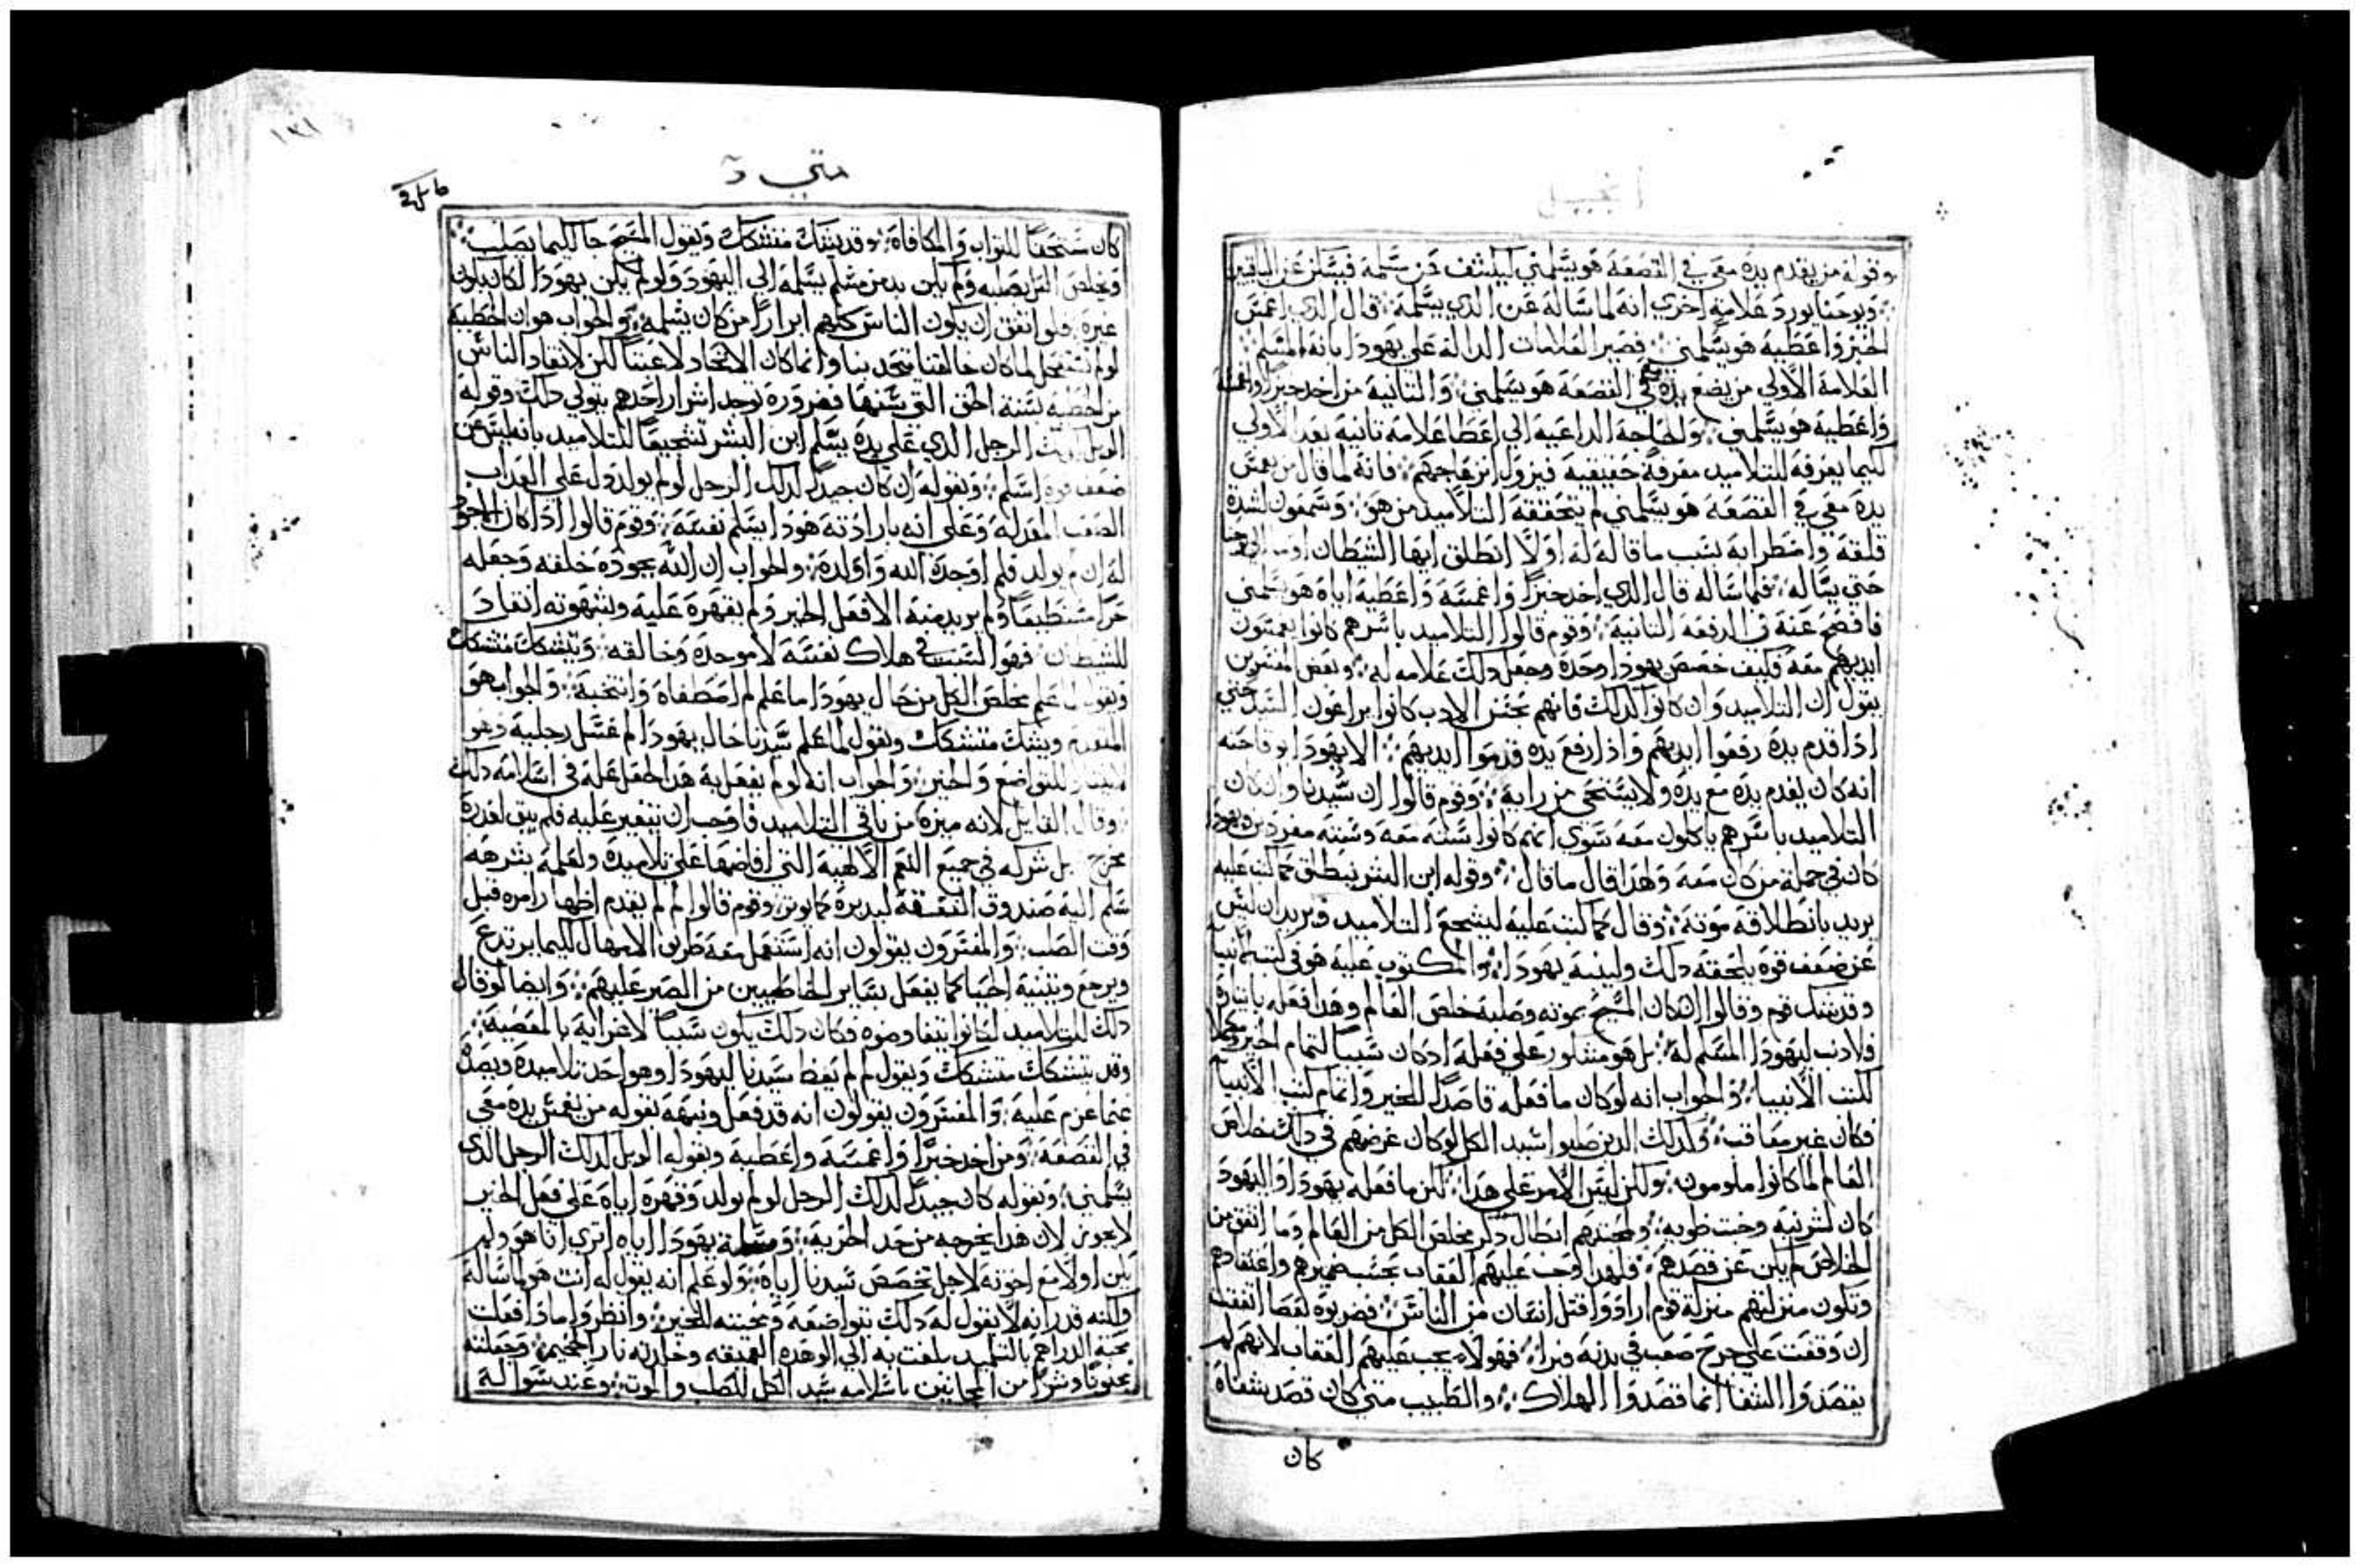 انجيل
وقوله من يقدم يده معي في القصعه هو يسلمني ليكشف عن مسلمه فيسكن عن الباقين
ويوحنا يورد علامه اخري انه لما ساله عن الذي يسلمه قال الذي اغمس
الخبز واعطيه هو يسلمني فصير العلامات الداله علي يهودا بانه المسلم
العلامة الاولي من يضع يده في القصعه هو يسلمني والثانية من اخد خبزا واغمسه
واعطيه هو يسلمني والحاجة الداعيه الي اعطا علامه تانيه بعد الاولي
كيما يعرفه للتلاميد معرفة حقيقيه فيزول انزعاجهم فانه لما قال من يغمس
يده معي في القصعه هو يسلمني لم يتحققه التلاميد من هو وشمعون لشدة
قلقه واضطرابه بسبب ما قاله له اولا انطلق ايها الشيطان اومـا الي يوحنا
حتي يساله فلما ساله قال الذي اخد خبزا واغمسه واعطيه اياه هو يسلمني
فافصح عنه في الدفعه التانية وقوم قالوا التلاميد باسرهم كانوا يغمسون
ايديهم معه فكيف خصص يهودا وحده وجعل دلك علامه له وبعض المفسرين
يقول ان التلاميد وان كانوا كدلك فانهم بحسن الادب كانوا يراعون السيد حتي
ادا قدم يده رفعوا ايديهم وادا رفع يده قدموا ايديهم الا يهودا لوقاحته
انه كان يقدم يده مع يده ولا يستحي من رابه وقوم قالوا ان سيدنا وان كان
التلاميد باسرهم ياكلون معه سوي انهم كانوا ستة معه وستة مفردين ويهودا
كان في جملة من كان معه ولهدا قال ما قال وقوله ابن البشر ينطلق كما كتب عليه
يريد بانطلاقه موته وقال كما كتب عليه ليشجع التلاميد ويريد ان ليس
عن ضعف قوة يلحقه دلك وليدينه يهودا والمكتوب عليه هو في كتب الانبيا
وقد يشك قوم وقالوا ان كان المسيح بموته وصلبه خلص العالم وهدا فعله بايثاره
فلا دنب ليهودا المسلم له بل هو مشكور علي فعله اد كان سببا لتمام الخير وكملا
لكتب الانبيا والجواب انه لو كان ما فعله قاصدا للخير واتمام كتب الانبيا
فكان غير معاقب وكدلك الدين صلبوا سيد الكل لو كان غرضهم في دلك خلاص
العالم لما كانوا ملومون ولكن ليس الامر علي هدا لكن ما فعله يهودا واليهود
كان لشر نيه وخبث طويه ولحسدهم ابطال دكر مخلص الكل من العالم وما اتفق من
الخلاص لم يكن عن قصدهم فلهدا وجب عليهم العقاب بحسب ضميرهم واعتقادهم
وتكون منزلتهم منزلة قوم ارادوا قتل انسان من الناس فضربوه لعصا اتفقت
ان وقفت علي جرح صعب في بدنه فبراء فهولاء يجب عليهم العقاب لانهم لم
يقصدوا الشفا انما قصدوا الهلاك والطبيب متي كان قصد شفاه
كان
١٣١
متي
كان مستحقا للثواب والمكافاة وقد يشك متشكك ويقول المسيح جا كيما يصلب
ويخلص الكل بصلبه ولم يكن بد من مسلم يسلمه الي اليهود ولو لم يكن يهودا لكان يكون
غيره فلو اتفق ان يكون الناس كلهم ابرارا من كان يسلمه والجواب هو ان الخطيه
لو لم تستفحل لما كان خالقنا يتحد بنا وانما كان الاتحاد لا عبثا لكن لانقاد الناس
من الخطيه بسنة الحق التي سنها فضرورة توجد اشرار احدهم يتولي دلك وقوله
الويل لدلك الرجل الدي علي يده يسلم ابن البشر تشجيعا للتلاميد بانه ليس عن
ضعف قوه اسلم وبقوله ان كان جيدا لدلك الرجل لو لم يولد دل علي العداب
الصعب المعد له وعلي انه بارادته هودا يسلم نفسه وقوم قالوا ادا كان الاجود
له ان لم يولد فلم اوجده الله واولده والجواب ان الله بجوده خلقه وجعله
حرا مستطيعا ولم يريد منه الا فعل الخير ولم يقهره عليه وبشهوته انقاد
للشيطان فهو السبب في هلاك نفسه لا موجده وخالقه ويتشكك متشكك
ويقول لما علم مخلص الكل من حال يهودا ما علم لم اصطفاه وانتخبه والجواب هو
المتقدم ويشك متشكك ويقول لما علم سيدنا حال يهودا لم غسل رجليه وهو
للتواضع والخير والجواب انه لو لم يفعل به هدا لجعل علة في اسلامه دلك
وقال القايل لانه ميزه من باقي التلاميد فاوجب ان يتغير عليه فلم يبق لعدره
مخرج بل شركه في جميع النعم الالهية التي افاضها علي تلاميده ولعلمه بشرهه
سلم اليه صندوق النفقة ليدبره كما يوثر وقوم قالوا لم لم يقدم اظهار امره قبل
وقت الصلب والمفسرون يقولون انه استعمل معه طريق الامهال كيما يرتدع
ويرجع وينيبه احيانا كما يفعل بساير الخاطيين من الصبر عليهم وايضا لو قال
دلك للتلاميد لكانوا يتفاوضوه فكان دلك يكون سببا لاغرايه بالمعصية
وقد يتشكك متشكك ويقول لم لم يعظ سيدنا ليهودا وهو احد تلاميده ويصده
عما عزم عليه والمفسرون يقولون انه قد فعل ونبهه بقوله من يغمس يده معي
في القصعة ومن اخد خبزا واغمسه واعطيه وبقوله الويل لدلك الرجل الدي
يسلمني وبقوله كان جيدا لدلك الرجل لو لم يولد وقهره اياه علي فعل الخير
لا يجوز لان هدا يخرجه من حد الحرية ومسلة يهودا اياه اتري انا هو ولم
يكن اولا مع اخوته لاجل تخصص سيدنا اياه ولو علم انه يقول له انت هو لما ساله
ولكنه قدر انه لا يقول له دلك بتواضعه ومحبته للخير وانظروا مادا فعلت
محبة الدراهم بالتلميد بلغت به الي الوهده العميقه وخلدته نار الجحيم وجعلته
مجنونا وشرا من المجانين باسلامه سيد الكل للصلب والموت وعند سواله